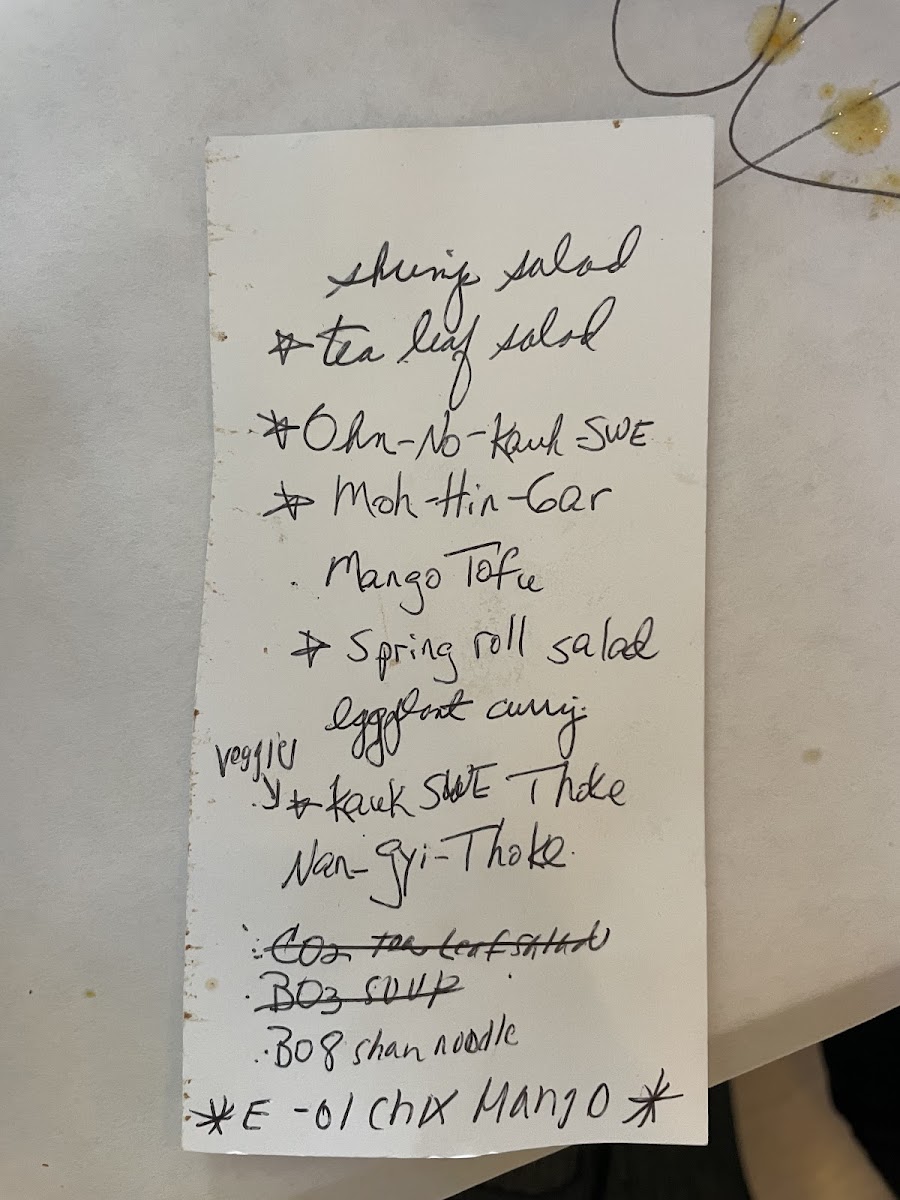 shrimp salad
* tea leaf salad
* Ohn-No-Kauk-SWE
* Moh-Hin-Gar
. Mango Tofu
* Spring roll salad
eggplant curry
veggies
* Kauk SWE Thoke
Nan-gyi-Thoke
C02 tea leaf salad
B03 soup
B08 shan noodle
* E-01 chix Mango *